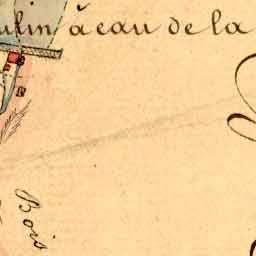 ulin à eau de la
Bois